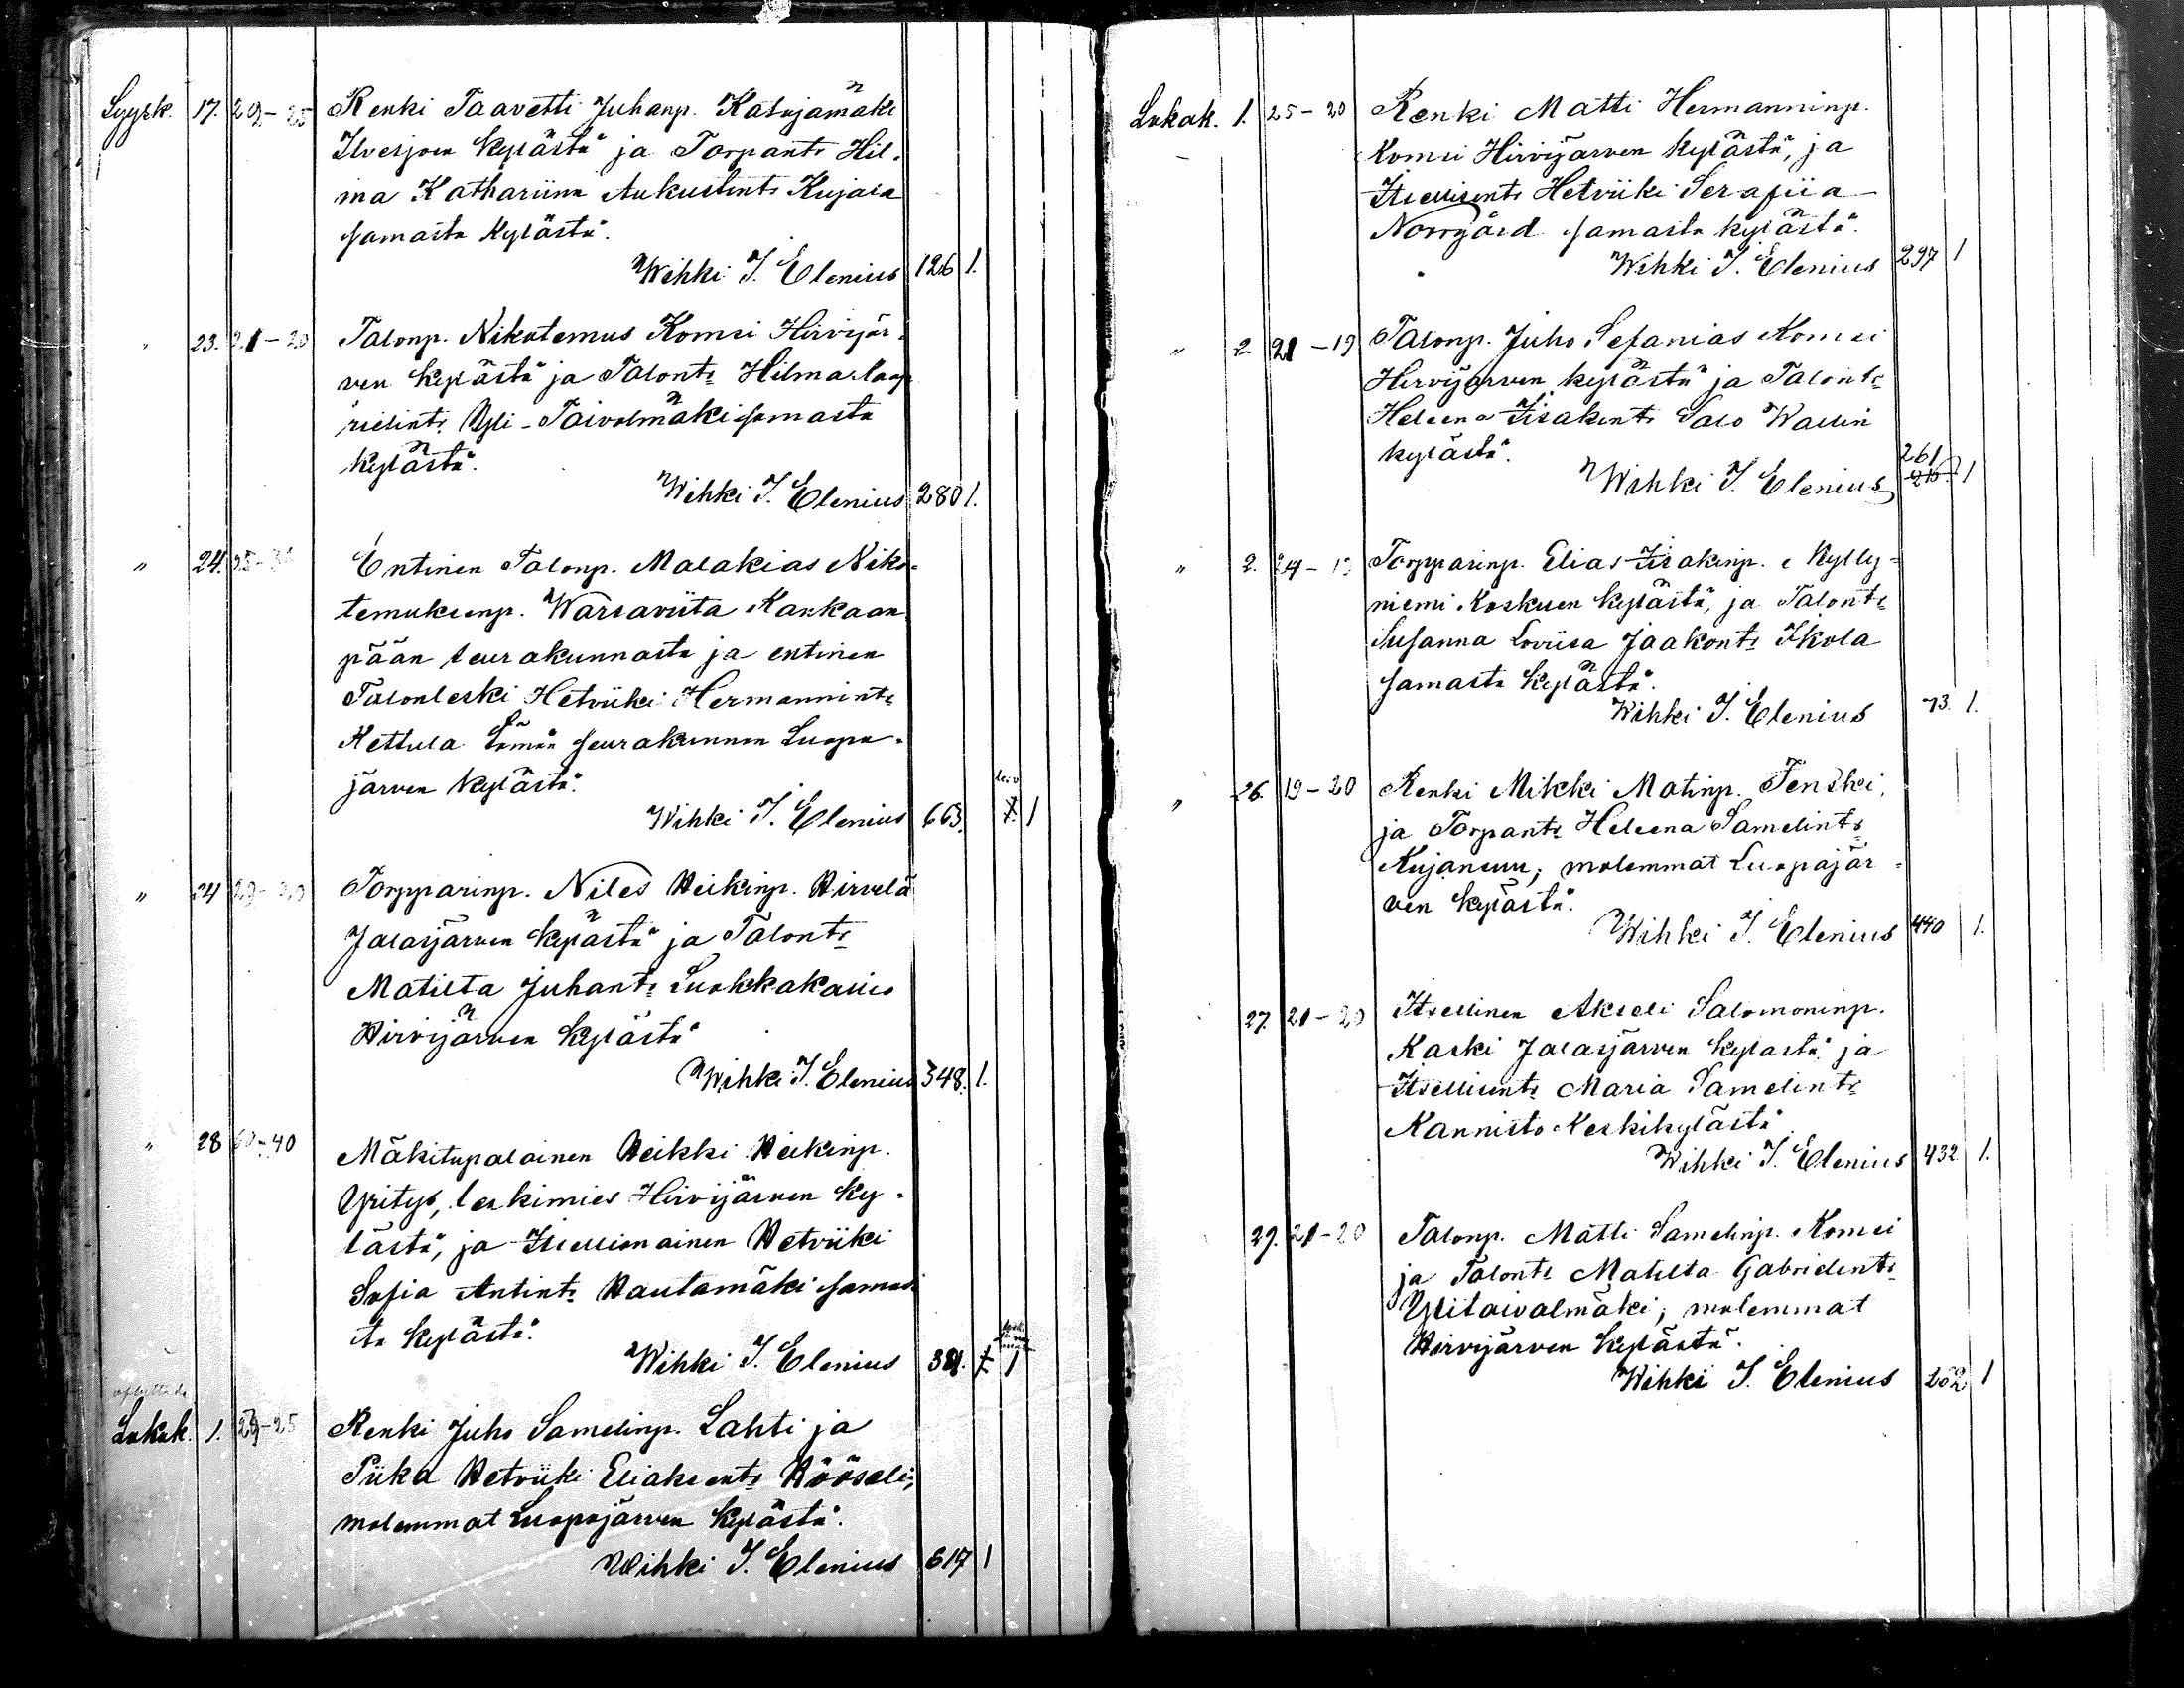 Syysk. 17. 29-25 Renki Taavetti Juhanp. Katajamäki
Ilvesjoen kylästä ja Torpant. Hil-
ma Kathariina Aukustint. Kujala
samasta kylästä.
Wihki J. Elenius 126 1.
" 23. 21-20 Talonp. Nikotemus Komsi Hirvijär-
ven kylästä ja Talont. Hilma
Yli-Taivalmäki samasta
kylästä.
Wihki J. Elenius 280 1.
" 24. Entinen Talonp. Malakias Niko-
temuksenp. Warsaviita Kankaan
pään seurakunnasta ja entinen
Talonleski Hetviiki Hermannint.
Kettula tämän seurakunnan Luopa-
järven kylästä.
Wihki J. Elenius 663. 1
" 24 Torpparinp. Niles Heikinp. Hirvelä
Jalasjärven kylästä ja Talont.
Matilta Juhant. Luokkakallio
Hirvijärven kylästä
Wihki J. Elenius 348. 1.
" 28 60-40 Mäkitupalainen Heikki Heikinp.
Yritys, leskimies Hirvijärven ky-
lästä, ja Itsellisnainen Hetviiki
Sofia Antint. Hautamäki samas-
ta kylästä.
Wihki J. Elenius 1
Lokak. 1. 29-25 Renki Juho Samelinp. Lahti ja
Piika Hetviiki Eliaksent. Hööseli,
molemmat Luopajärven kylästä.
Wihki J. Elenius 617 1
Lokak. 1. 25-20 Renki Matti Hermanninp.
Komsi Hirvijärven kylästä, ja
Itsellisent. Hetviiki Serafiia
Norrgård samasta kylästä.
Wihki J. Elenius 297 1
" 2 21-19 Talonp. Juho Sefanias Komsi
Hirvijärven kylästä ja Talont.
Heleena Iisakint. Salo Wallin
kylästä.
261
Wihki J. Elenius 1
" 2. Torpparinp. Elias Iisakinp. Kylly-
niemi Koskuen kylästä, ja Talont.
Susanna Loviisa Jaakont. Ikola
samasta kylästä.
Wihki J. Elenius 73. 1.
" 26. 19-20 Renki Mikki Matinp. Tenski,
ja Torpant. Heleena Samelint.
Kujanuu, molemmat Luopajär-
ven kylästä.
Wihki J. Elenius 440 1.
27. 21-20 Itsellinen Akseli Salomoninp.
Kaski Jalasjärven kylästä ja
Itsellisent. Maria Samelint.
Kannisto Keskikylästä
Wihki J. Elenius 432 1.
29. 21-20 Talonp. Matti Samelinp. Komsi
ja Talont. Matilta Gabrielint.
Ylitaivalmäki, molemmat
Hirvijärven kylästä.
Wihki J. Elenius 1